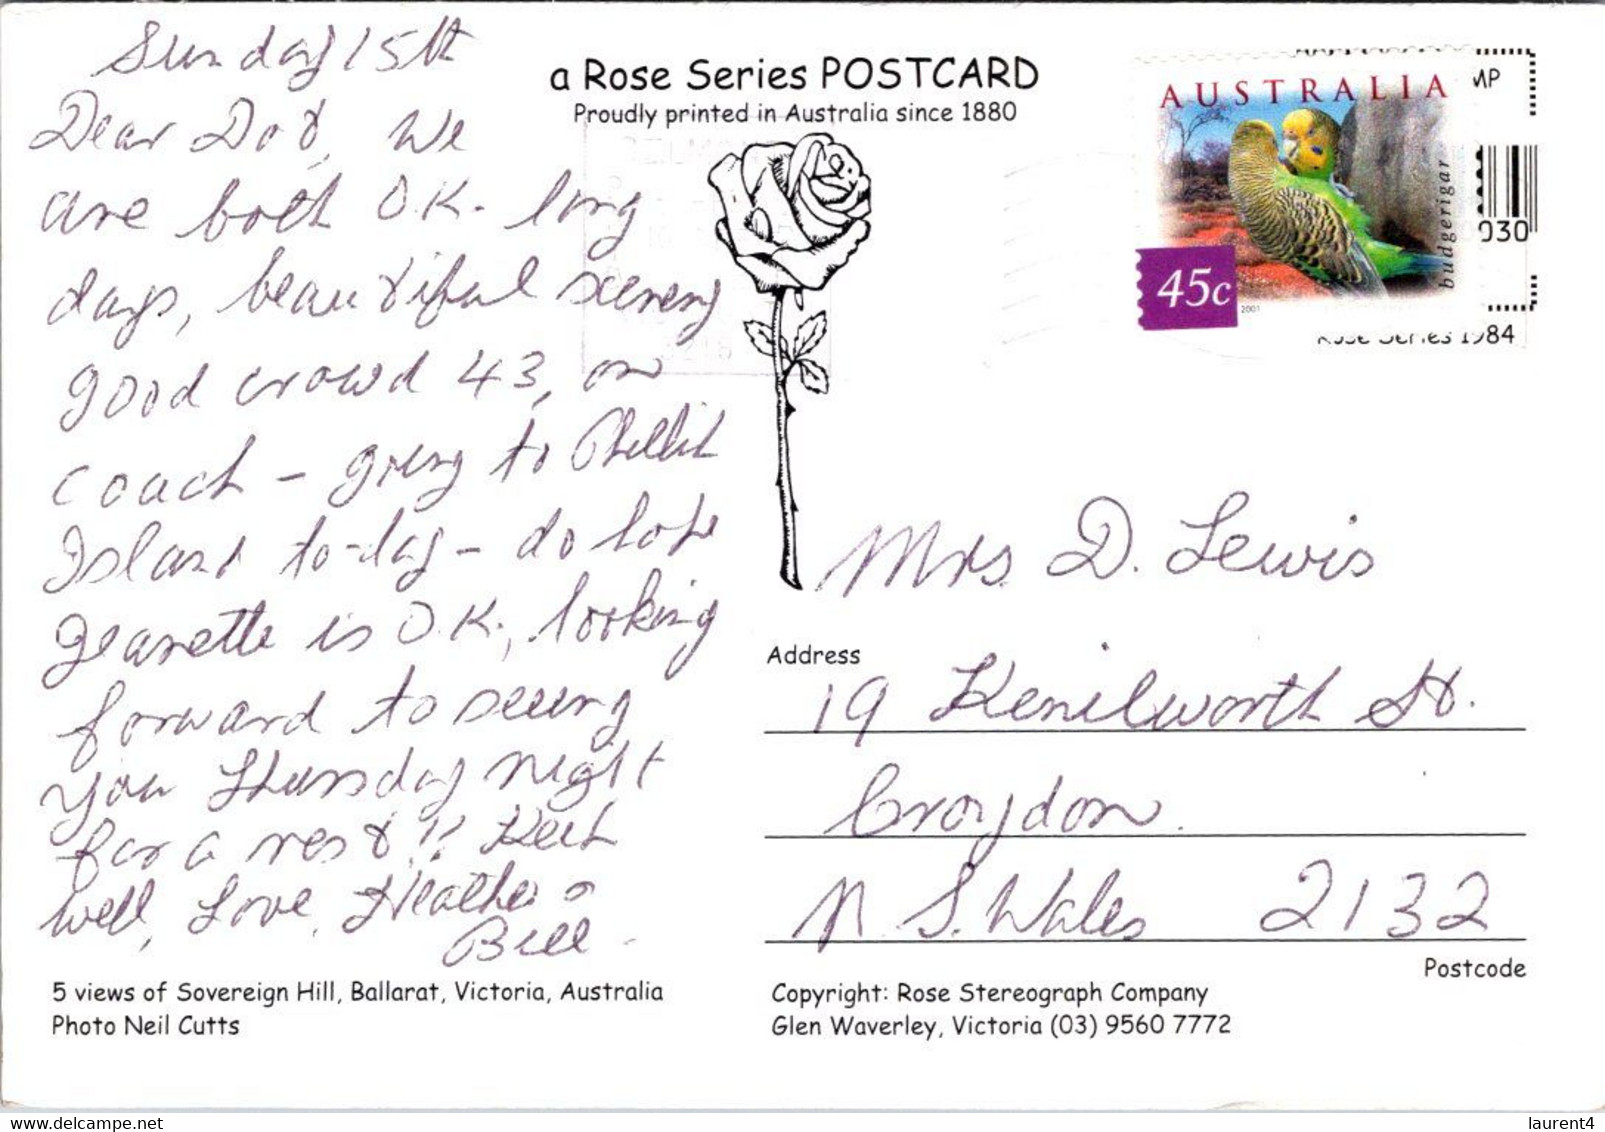 Sunday 15th
Dear Dot, We
are both O.K. long
days, beautiful scenery
good crowd 43, on
coach – going to Phillip
Island to-day – do hope
Jeanette is O.K., looking
forward to seeing
you Thursday night
for a rest!! Keep
well, Love, Heather &
Bill.
5 views of Sovereign Hill, Ballarat, Victoria, Australia
Photo Neil Cutts
a Rose Series POSTCARD
Proudly printed in Australia since 1880
AUSTRALIA
budgerigar
45c
2001
MP
930
Rose Series 1984
Mrs D. Lewis
Address
19 Kenilworth St.
Croydon.
N S. Wales 2132
Postcode
Copyright: Rose Stereograph Company
Glen Waverley, Victoria (03) 9560 7772
delcampe.net
laurent4